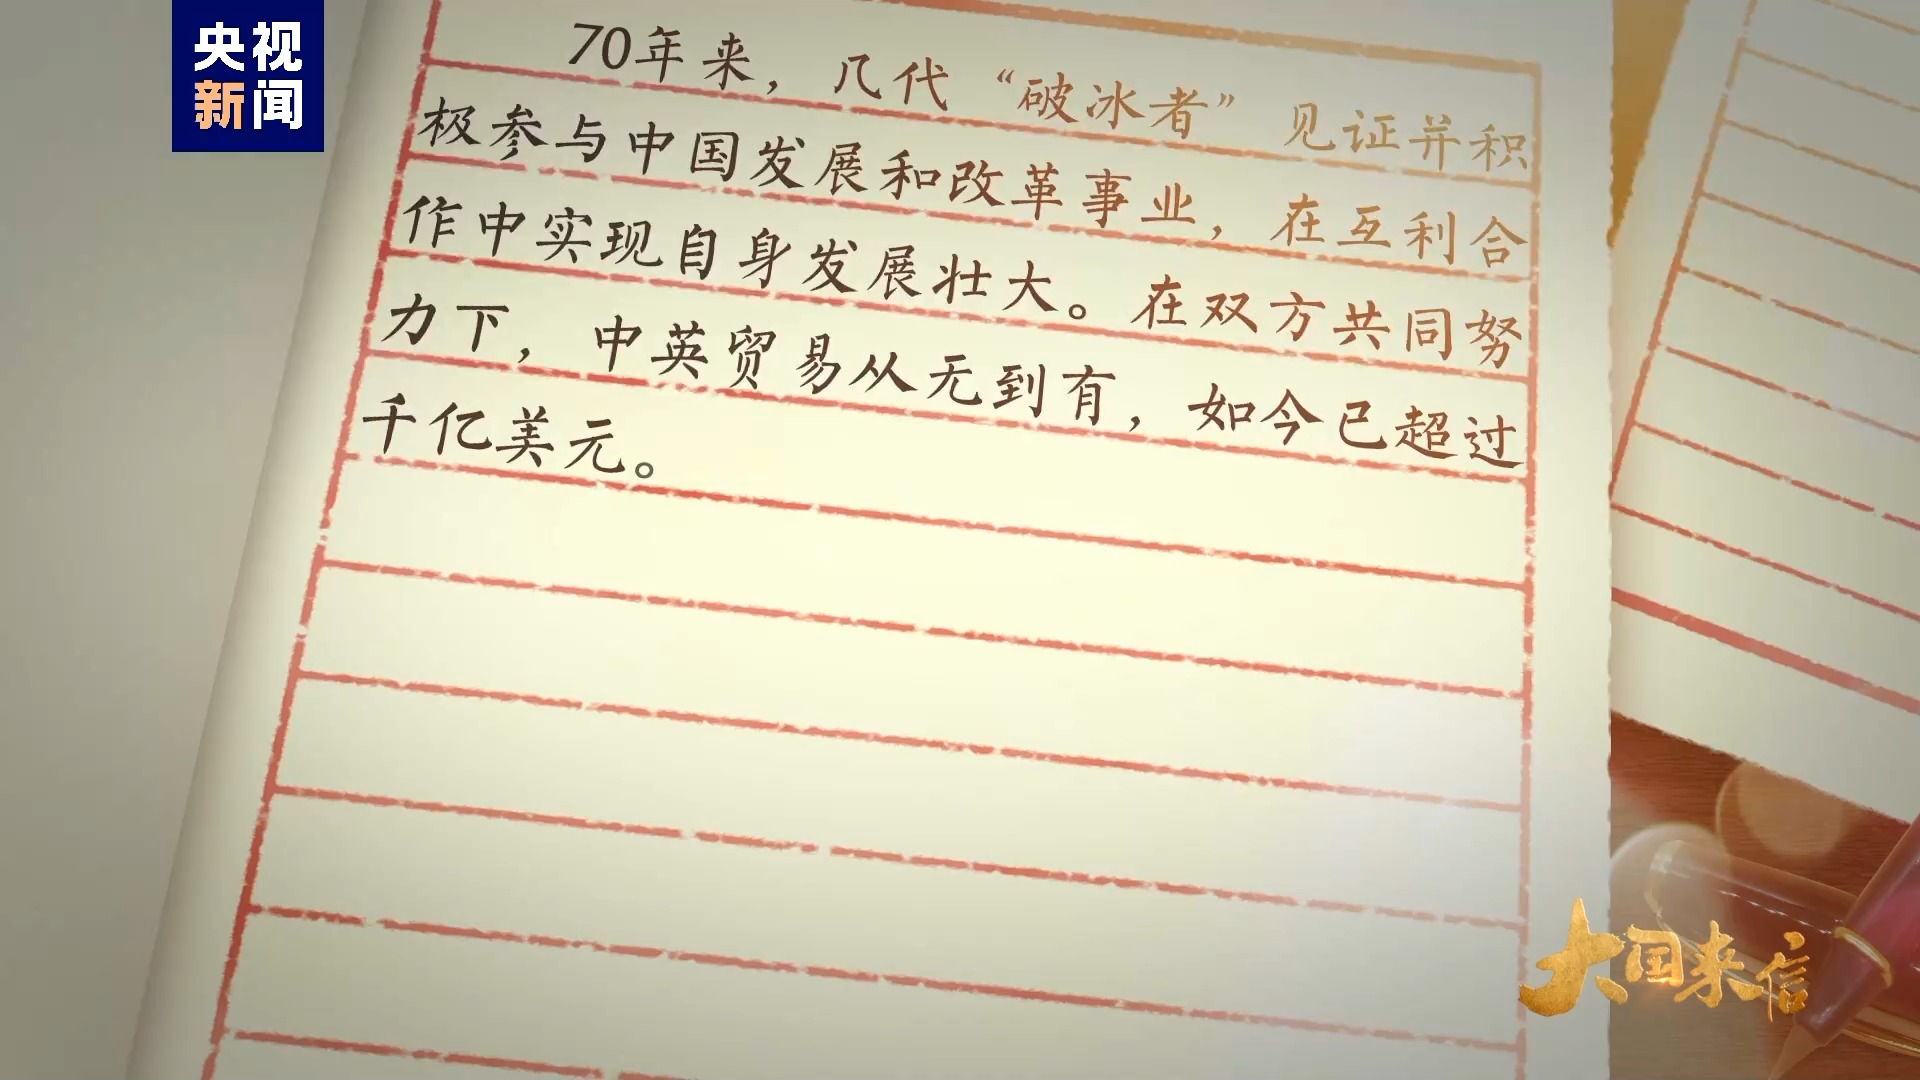 央视
新闻
70年来，几代“破冰者”见证并积
极参与中国发展和改革事业，在互利合
作中实现自身发展壮大。在双方共同努
力下，中英贸易从无到有，如今已超过
千亿美元。
大国来信